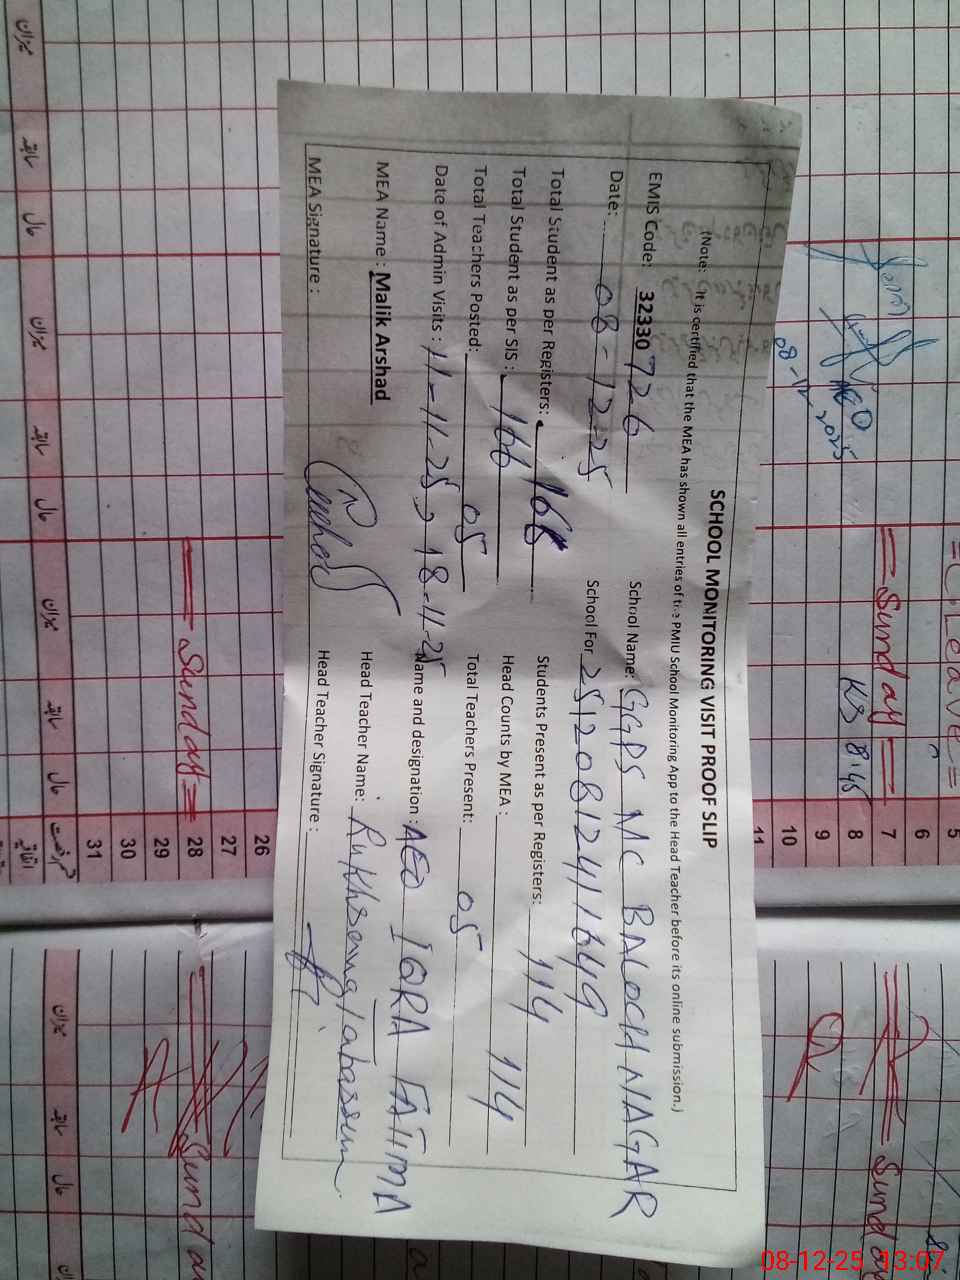 SCHOOL MONITORING VISIT PROOF SLIP
(Note: It is certified that the MEA has shown all entries of the PMIU School Monitoring App to the Head Teacher before its online submission.)
EMIS Code: 32330726 School Name: GGPS MC BALOCH NAGAR
Date: 08-12-25 School For 25120812411649
Total Student as per Registers: 166 Students Present as per Registers: 114
Total Student as per SIS: 166 Head Counts by MEA: 114
Total Teachers Posted: 05 Total Teachers Present: 05
Date of Admin Visits: 11-11-25, 18-11-25 Name and designation: AEO IQRA FATIMA
MEA Name: Malik Arshad Head Teacher Name: Rukhsana Tabassum
MEA Signature: Head Teacher Signature:
AEO
08-12-2025
= Leave =
= Sunday =
8:45
5
6
7
8
9
10
11
26
27
28
29
30
31
= Sunday =
Sunday
Sunday
میزان
سابقہ
حال
میزان
سابقہ
حال
میزان
سابقہ
حال
میزان
سابقہ
حال
08-12-25 13:07